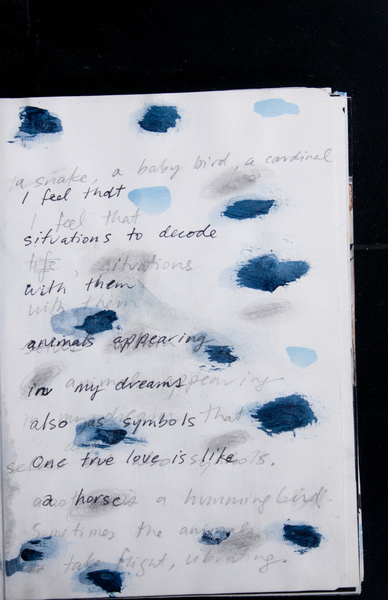 a snake, a baby bird, a cardinal
I feel that
I feel that
situations to decode
life, situations
with them
with them
animals appearing
in my dreams
animals appearing
also as symbols
in my dreams that
One true love is life
symbols.
a horse
a humming bird.
Sometimes the animals
take flight, vibrating.